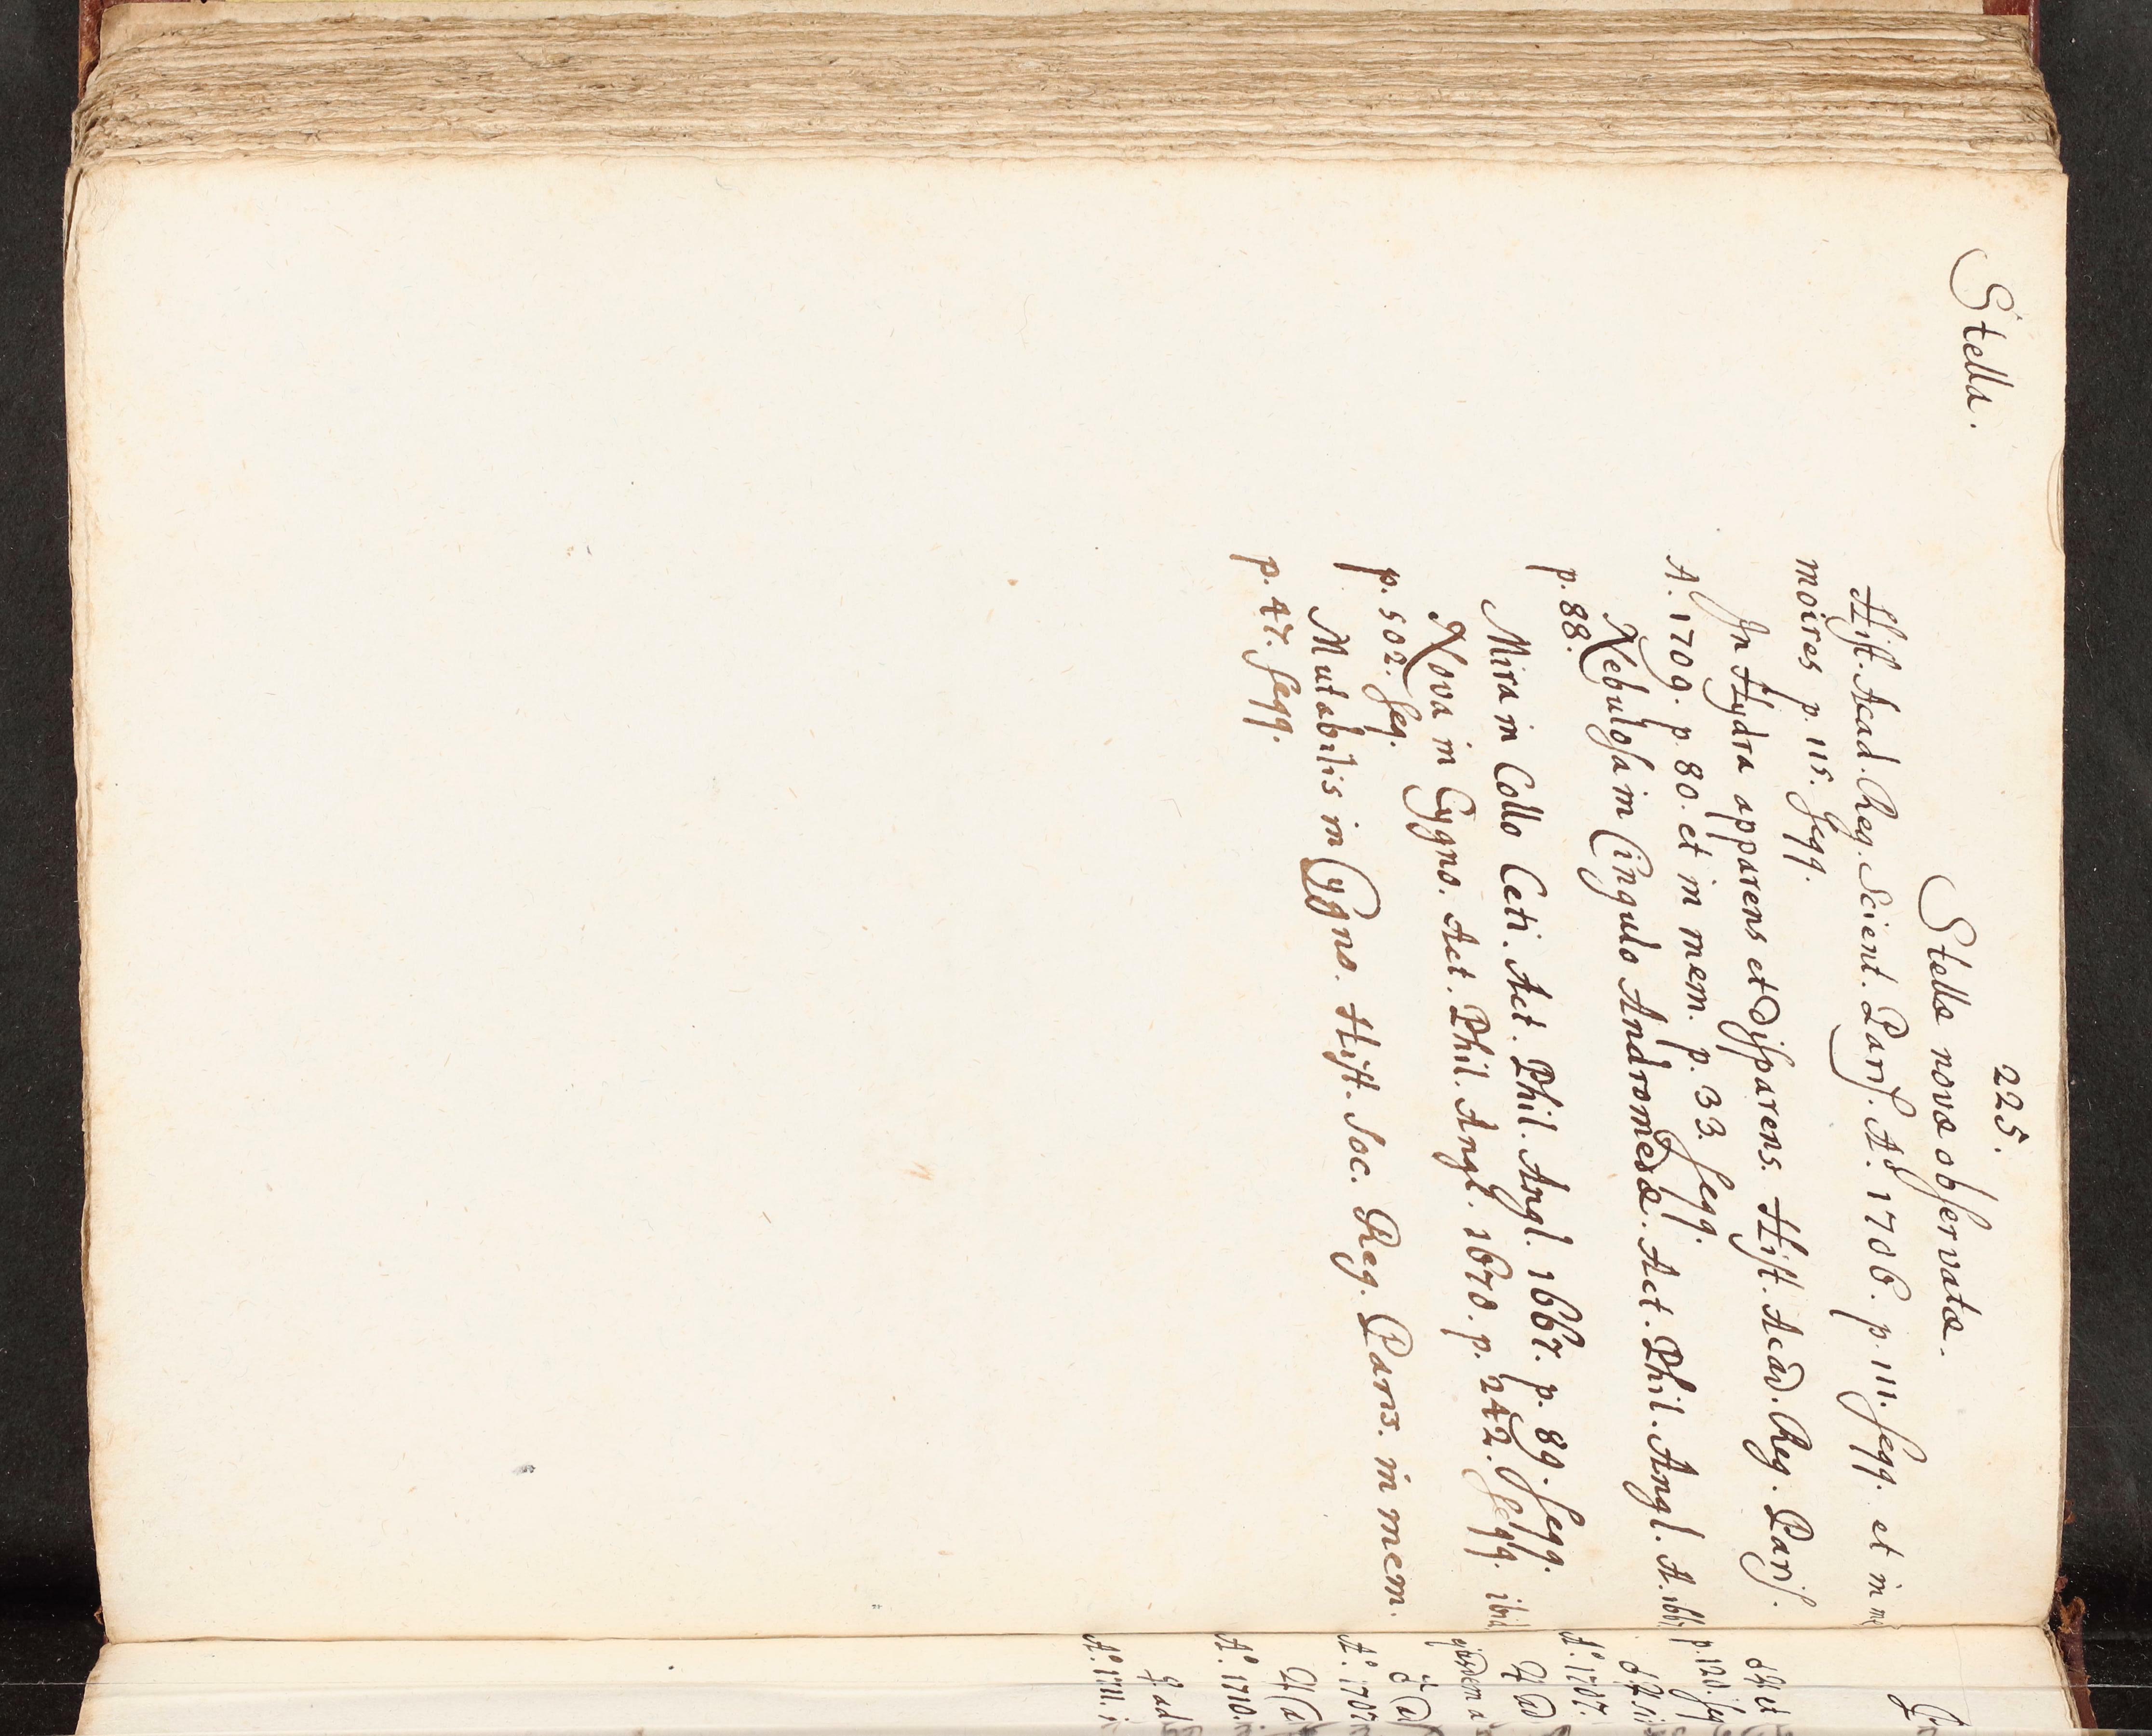 225.
Stella.
Stellæ novæ observatæ.
Hist. Acad. Reg. Scient. Paris. Aº. 1706. p. 111. seqq. et in me
moires p. 115. seqq.
In Hydra apparens et disparens. Hist. Acad. Reg. Paris.
A. 1709. p. 80. et in mem. p. 33. seqq.
Nebulosa in Cingulo Andromedæ. Act. Phil. Angl. A. 1667
p. 88.
Mira in Collo Ceti. Act. Phil. Angl. 1667. p. 89. seqq.
Nova in Cygno. Act. Phil. Angl. 1670. p. 242. seqq. ibid
p. 502. seq.
Mutabilis in Cygno. Hist. Soc. Reg. Paris. in mem.
p. 47. seqq.
♂ ♃ et
p. 120. seq
Aº. 1707.
♃ ad
ejusdem a
♂ (a
Aº. 1707
♃ (a
Aº. 1710.
♀ ad
Aº. 1711. i